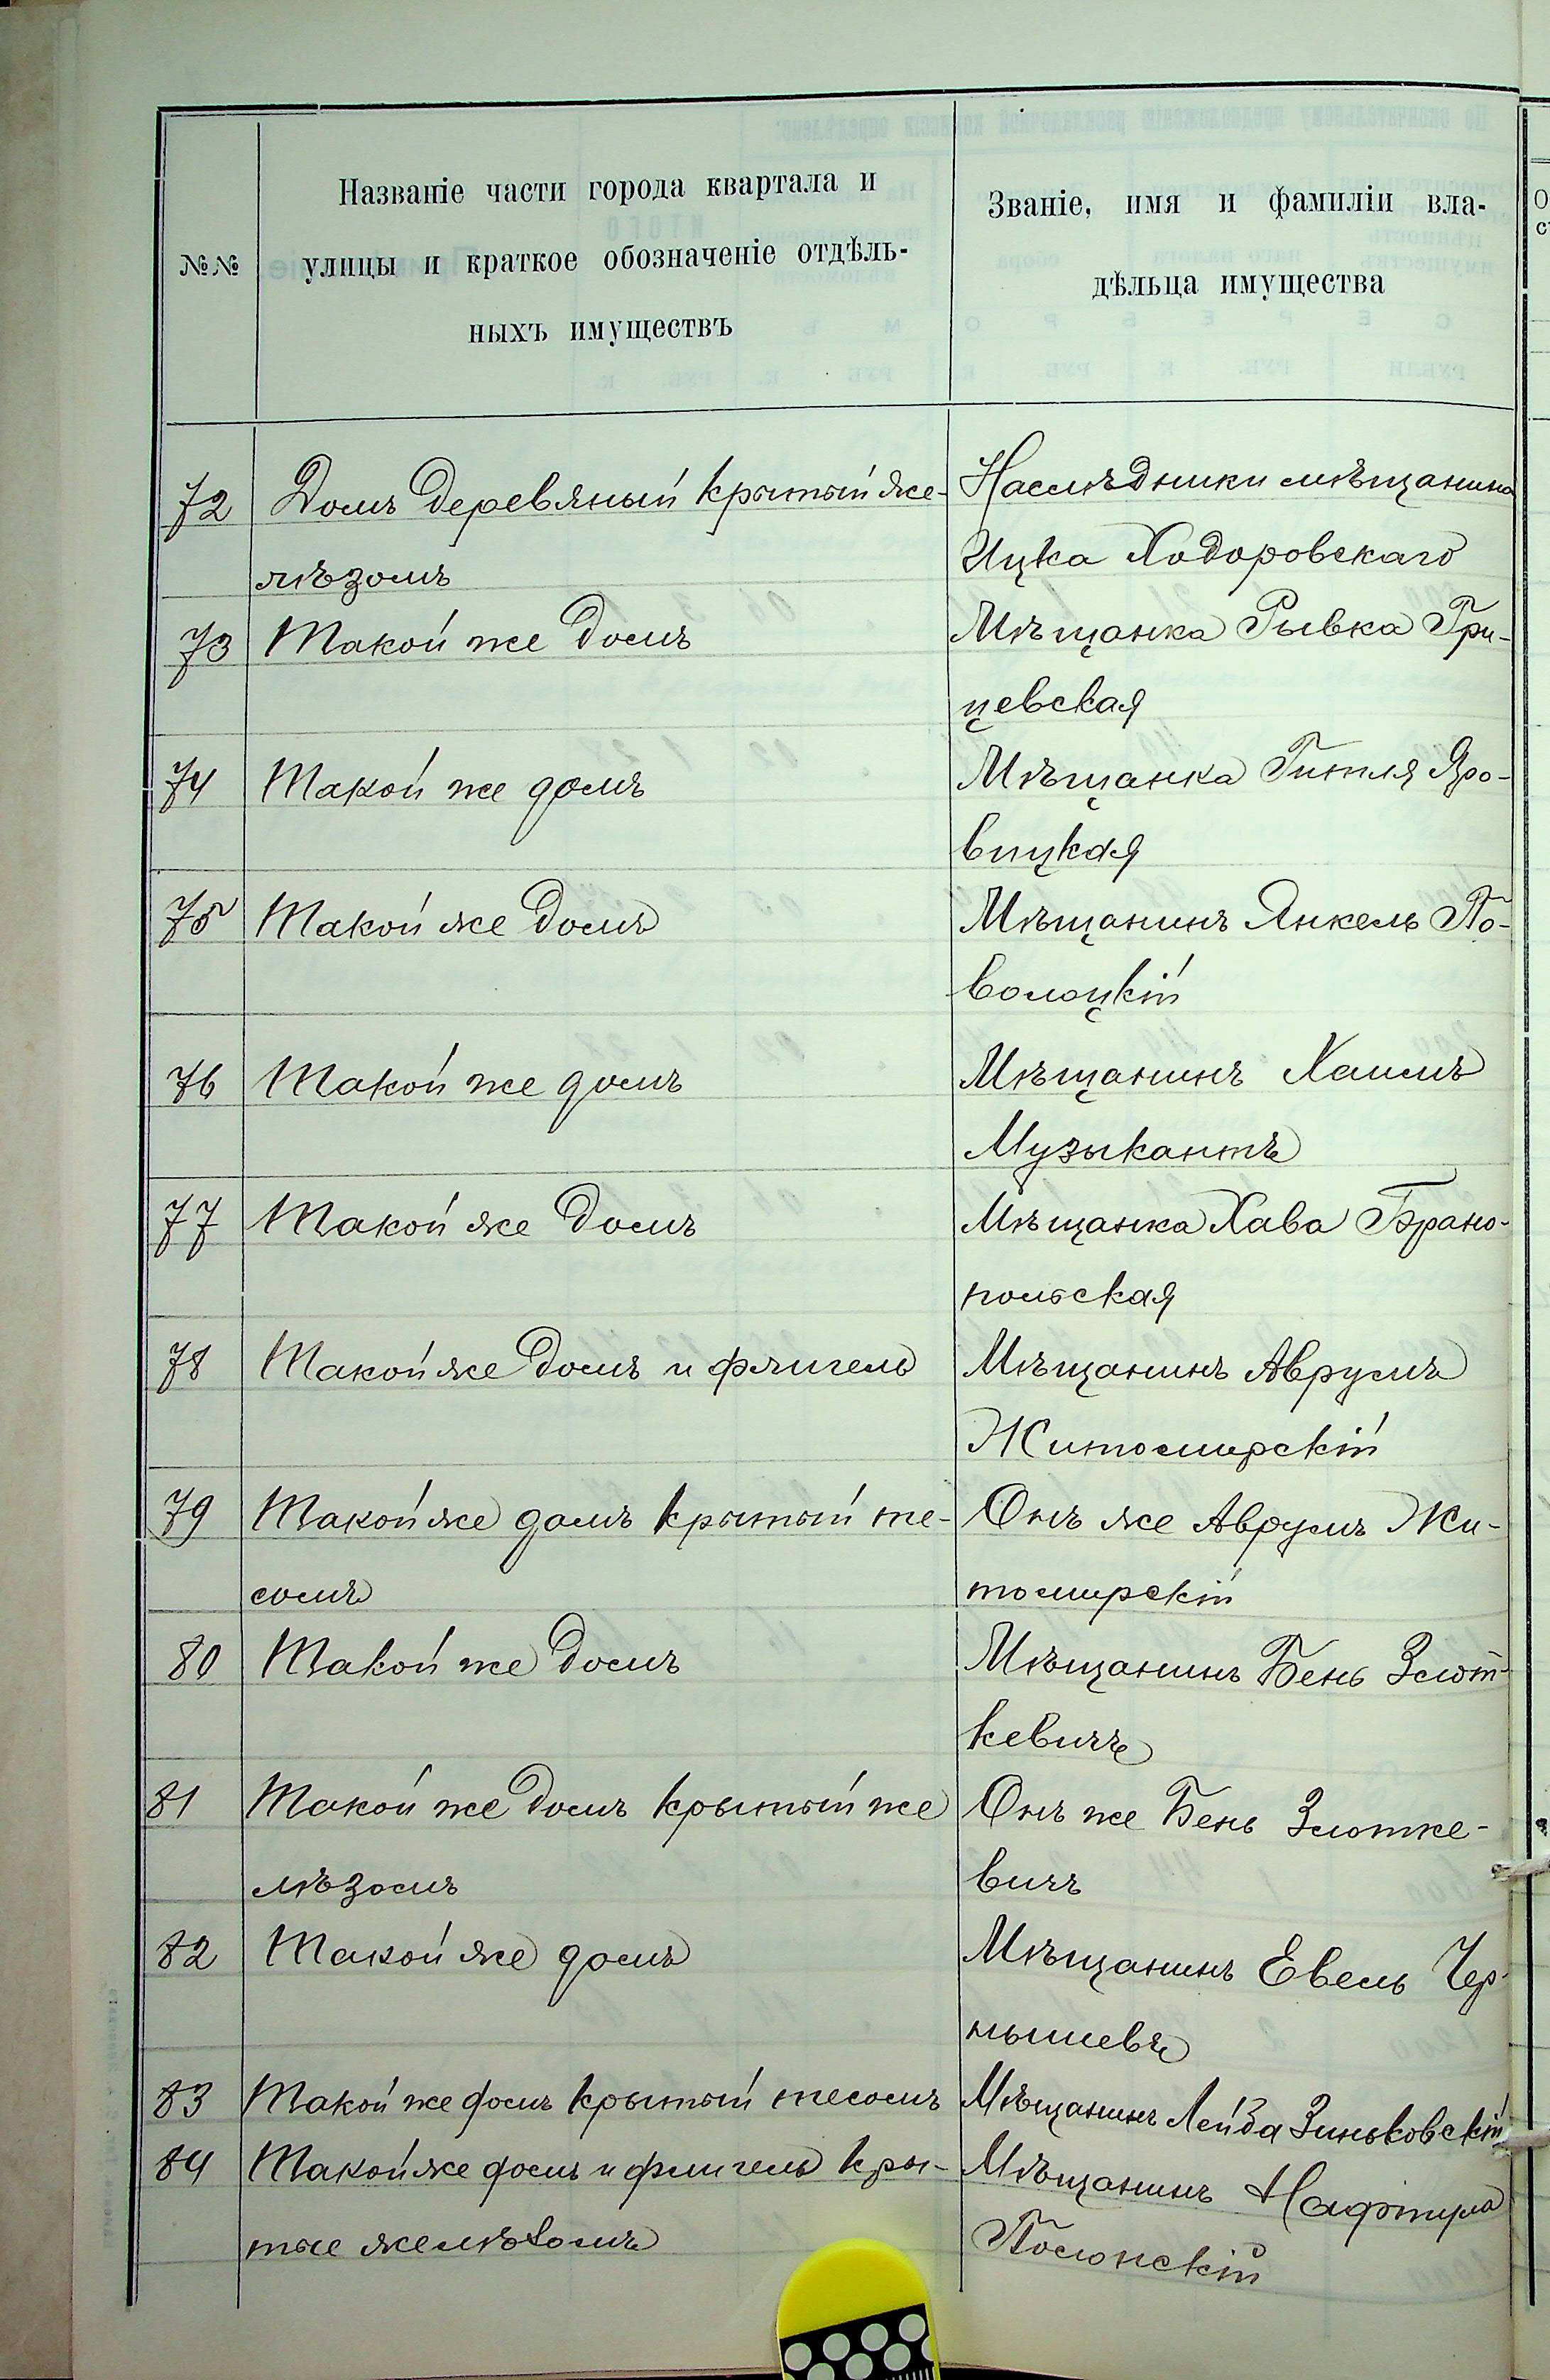 №№
Названіе части города квартала и
улицы и краткое обозначеніе отдѣль-
ныхъ имуществъ
Званіе, имя и фамиліи вла-
дѣльца имущества
72 Домъ деревяный крытый же- Наслѣдники мѣщанина
лѣзомъ Ицка Ходоровскаго
73 Такой же домъ Мѣщанка Рывка Гри-
цевская
74 Такой же домъ Мѣщанка Гитля Яро-
вицкая
75 Такой же домъ Мѣщанинъ Янкель По-
волоцкій
76 Такой же домъ Мѣщанинъ Хаимъ
Музыкантъ
77 Такой же домъ Мѣщанка Хава Брано-
польская
78 Такой же домъ и флигель Мѣщанинъ Аврумъ
Житомирскій
79 Такой же домъ крытый те- Онъ же Аврумъ Жи-
сомъ томирскій
80 Такой же домъ Мѣщанинъ Бень Злот-
кевичъ
81 Такой же домъ крытый же Онъ же Бень Злотке-
лѣзомъ вичъ
82 Такой же домъ Мѣщанинъ Евель Чер-
нышевъ
83 Такой же домъ крытый тесомъ Мѣщанинъ Лейба Зиньковскій
84 Такой же домъ и флигель кры- Мѣщанинъ Нафтула
тые желѣзомъ Полонскій